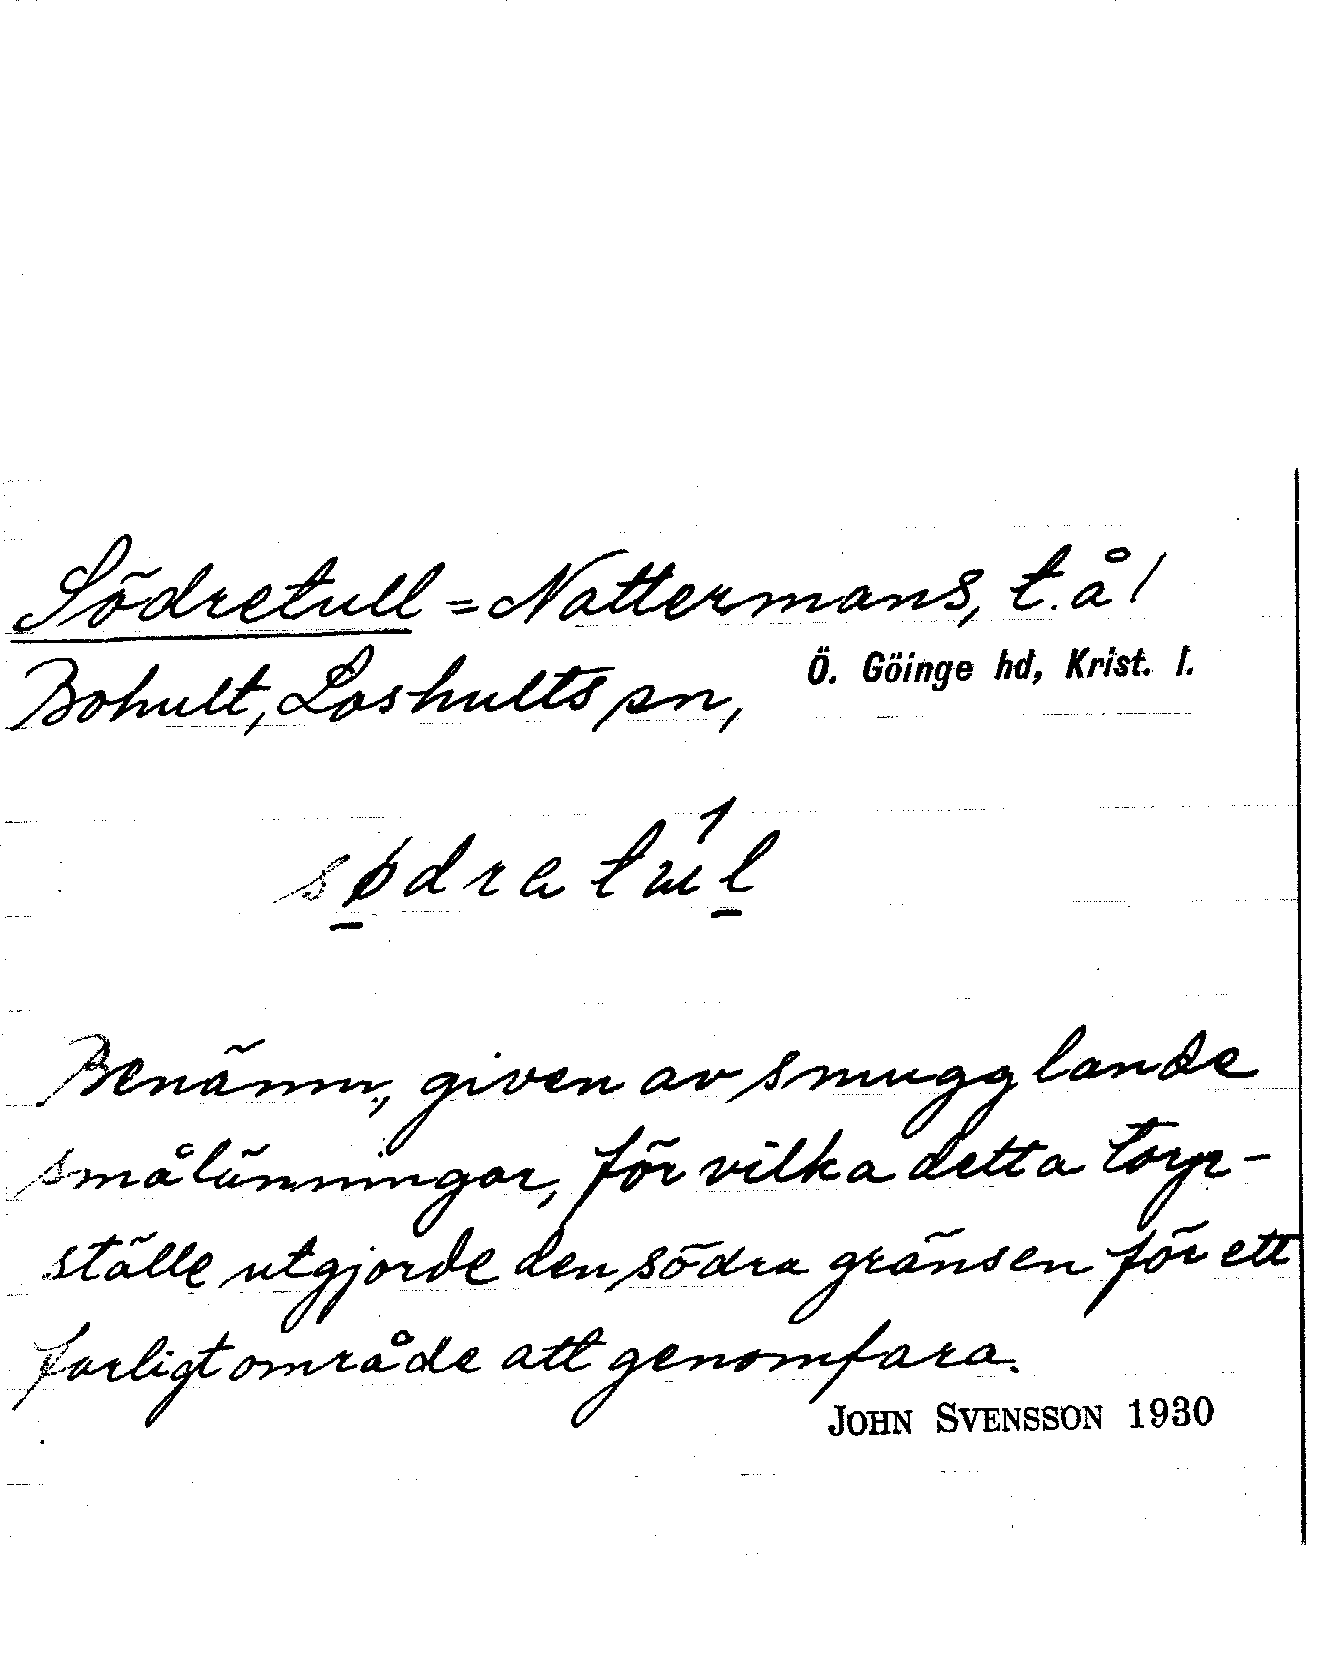 Södretull = Nattermans, t. å/
Bohult, Loshults sn,
Ö. Göinge hd, Krist. l.
Benämn., given av smugglande
smålänningar, för vilka detta torp-
ställe utgjorde den södra gränsen för ett
farligt område att genomfara.
JOHN SVENSSON 1930